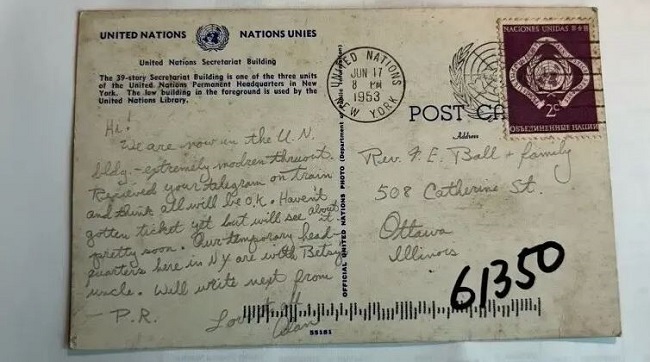 UNITED NATIONS NATIONS UNIES
United Nations Secretariat Building
The 39-story Secretariat Building is one of the three units
of the United Nations Permanent Headquarters in New
York. The low building in the foreground is used by the
United Nations Library.
Hi!
We are now in the U.N.
bldg. - extremely modren thruout.
Recieved your telegram on train
and think all will be O.K. Haven't
gotten ticket yet but will see about it
pretty soon. Our temporary head-
quarters here in N.Y. are with Betsy
uncle. Will write next from
- P.R.
Love to all
Alan
OFFICIAL UNITED NATIONS PHOTO (Department of Public Information)
55181
UNITED NATIONS
JUN 17
8 PM
1953
NEW YORK
NACIONES UNIDAS
2c
ОБЪЕДИНЕННЫЕ НАЦИИ
POST CA
Address
Rev. F. E. Ball + family
508 Catherine St.
Ottawa
Illinois
61350